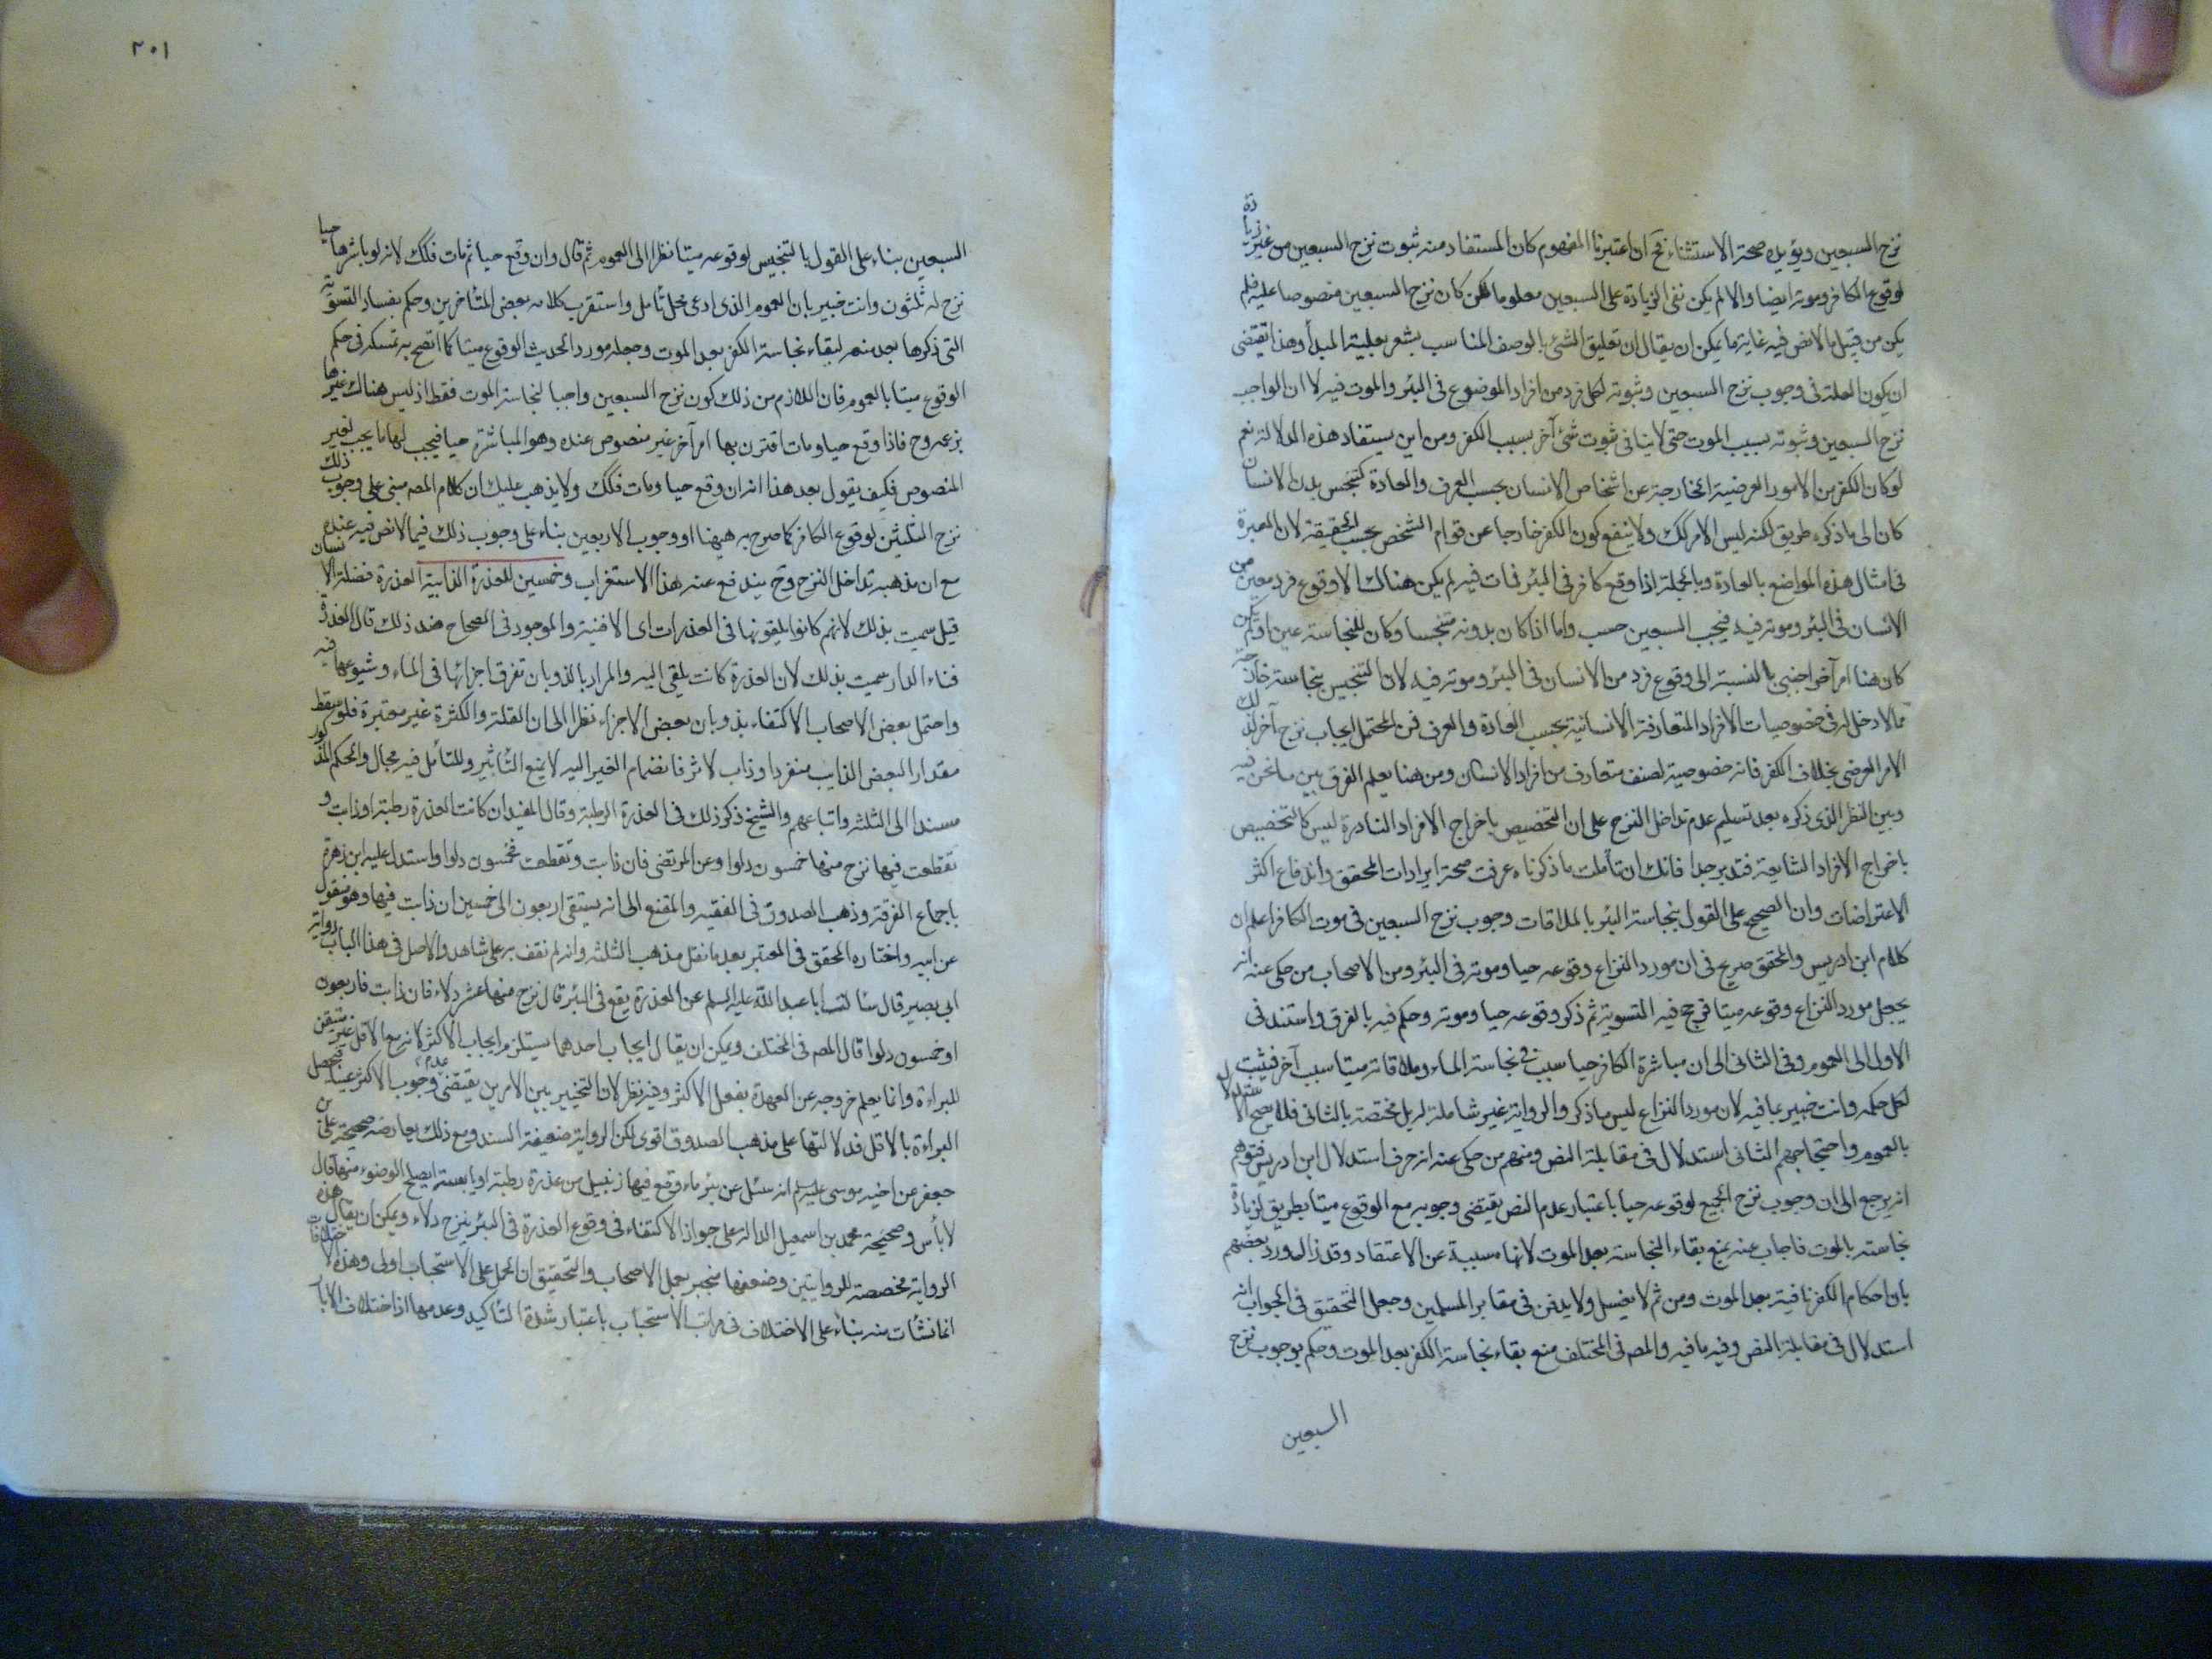 نزح السبعين ويؤيده صحة الاستثناء فح ان اعتبرنا المفهوم كان المستفاد منه ثبوت نزح السبعين من غير زيادة
لوقوع الكافر وموته ايضا والا لم يكن نفى الزيادة على السبعين معلوما لكن كان نزح السبعين منصوصا عليه فلم
يكن من قبيل ما لا نص فيه غاية ما يمكن ان يقال ان تعليق الشئ بالوصف المناسب يشعر بعلية المبدأ وهذا يقتضى
ان يكون العلة فى وجوب نزح السبعين وثبوته لكل فرد من افراد الموضوع فى البئر والموت فيه لا ان الواجب
نزح السبعين وثبوته بسبب الموت حتى لا ينافى ثبوت شئ آخر بسبب الكفر ومن اين يستفاد هذه الدلالة نعم
لو كان الكفر من الامور العرضية الخارجة عن اشخاص الانسان بحسب العرف والعادة كتنجس بدن الانسان
كان الى ما ذكره طريق لكنه ليس الامر كك ولا ينفع كون الكفر خارجا عن قوام الشخص بحسب الحقيقة لان العبرة
فى امثال هذه المواضع بالعادة وبالجملة اذا وقع كافر فى البئر فمات فيه لم يكن هناك الا وقوع فرد معين من
الانسان فى البئر وموته فيه فيجب السبعين حسب واما اذا كان بدونه متنجسا وكان للنجاسة عين او لم يكن
كان هنا امر آخر اجنبى بالنسبة الى وقوع فرد من الانسان فى البئر وموته فيه لان التنجيس بنجاسة خارجة
مما لا دخل له فى خصوصيات الافراد المتعارفة الانسانية بحسب العادة والعرف فمن المحتمل ايجاب نزح آخر لذلك
الامر العرضى بخلاف الكفر فانه خصوصية لصنف متعارف من افراد الانسان ومن هنا يعلم الفرق بين ما نحن فيه
وبين النظر الذى ذكره بعد تسليم عدم تداخل النزح على ان التخصيص باخراج الافراد النادرة ليس كالتخصيص
باخراج الافراد الشايعة فتدبر جدا فانك ان تأملت ما ذكرناه عرفت صحة ايرادات المحقق واندفاع اكثر
الاعتراضات وان الصحيح على القول بنجاسة البئر بالملاقات وجوب نزح السبعين فى موت الكافر اعلم ان
كلام ابن ادريس والمحقق صريح فى ان مورد النزاع وقوعه حيا وموته فى البئر ومن الاصحاب من حكى عنه انه
يجعل مورد النزاع وقوعه ميتا فرجح فيه التسوية ثم ذكر وقوعه حيا وموته وحكم فيه بالفرق واستند فى
الاول الى العموم وفى الثانى الى ان مباشرة الكافر حيا سبب فى نجاسة الماء وملاقاته ميتا سبب آخر فيثبت
لكل حكمه وانت خبير بما فيه لان مورد النزاع ليس ما ذكر والرواية غير شاملة له بل مختصة بالثانى فلا يصح الاستدلال
بالعموم واحتجاجهم الثانى استدلال فى مقابلة النص ومنهم من حكى عنه انه حرف استدلال ابن ادريس فتوهم
انه يرجع الى ان وجوب نزح الجميع لوقوعه حيا باعتبار عدم النص يقتضى وجوبه مع الوقوع ميتا بطريق لزيادة
نجاسته بالموت فاجاب عنه بمنع بقاء النجاسة بعد الموت لانها مسببة عن الاعتقاد وقد زال ورد بعضهم
بان احكام الكفر باقية بعد الموت ومن ثم لا يغسل ولا يدفن فى مقابر المسلمين وجعل التحقيق فى الجواب انه
استدلال فى مقابلة النص وفيه ما فيه والمصه فى المختلف منع بقاء نجاسة الكفر بعد الموت وحكم بوجوب نزح
السبعين
٢٠١
السبعين بناء على القول بالتنجيس لوقوعه ميتا نظرا الى العموم ثم قال وان وقع حيا ثم مات فكك لانه لو باشرها حيا
نزح له ثلثون وانت خبير بان العموم الذى ادعى محل تأمل واستقرب كلامه بعض المتأخرين وحكم بفساد التسوية
التى ذكرها بعد منعه لبقاء نجاسة الكفر بعد الموت وجعله مورد الحديث الوقوع ميتا كما اتضح به تمسكه فى حكم
الوقوع ميتا بالعموم فان اللازم من ذلك كون نزح السبعين واجبا لنجاسة الموت فقط اذ ليس هناك غيرها
بزعمه وح فاذا وقع حيا ومات اقترن بها امر آخر غير منصوص عنده وهو المباشرة حيا فيجب لها ما يجب لغير
المنصوص فكيف يقول بعد هذا انه ان وقع حيا ومات فكك ولا يذهب عليك ان كلام المصه مبنى على وجوب ذلك
نزح الثلثين لوقوع الكافر كما صرح به ههنا او وجوب الاربعين بناء على وجوب ذلك فيما لا نص فيه عنده
مع ان مذهبه تداخل النزح وح يندفع عنه هذا الاستغراب وخمسين للعذرة الذايبة العذرة فضلة الانسان
قيل سميت بذلك لانهم كانوا يلقونها فى العذرات اى الافنية والموجود فى الصحاح ضد ذلك قال العذرة
فناء الدار سميت بذلك لان العذرة كانت يلقى اليه والمراد بالذوبان تفرق اجزائها فى الماء وشيوعها فيه
واحتمل بعض الاصحاب الاكتفاء بذوبان بعض الاجزاء نظرا الى ان القلة والكثرة غير معتبرة فلو سقط
مقدار البعض الذايب منفردا وذاب لاثر فانضمام الغير اليه لا يمنع التأثير وللتأمل فيه مجال والحكم المذكور
مسندا الى الثلثة واتباعهم والشيخ ذكر ذلك فى العذرة الرطبة وقال المفيد ان كانت العذرة رطبة او ذابت و
تقطعت فيها نزح منها خمسون دلوا وعن المرتضى فان ذابت وتقطعت فخمسون دلوا واستدل عليه ابن زهرة
باجماع الفرقة وذهب الصدوق فى الفقيه والمقنع الى انه يستقى اربعون الى خمسين ان ذابت فيها وهو منقول
عن ابيه واختاره المحقق فى المعتبر بعد ما نقل مذهب الثلثة وانه لم نقف به على شاهد والاصل فى هذا الباب رواية
ابى بصير قال سألت ابا عبد الله عليه السلم عن العذرة يقع فى البئر قال نزح منها عشر دلاء فان ذابت فاربعون
او خمسون دلوا قال المصه فى المختلف ويمكن ان يقال ايجاب احدهما يستلزم ايجاب الاكثر لانه مع الاقل غير متيقن
البراءة وانما يعلم خروجه عن العهدة بفعل الاكثر وفيه نظر لان التخيير بين الامرين يقتضى عدم وجوب الاكثر عينا فيحصل
البراءة بالاقل فدلالتها على مذهب الصدوق اقوى لكن الرواية ضعيفة السند ومع ذلك يعارضه صحيحة على بن
جعفر عن اخيه موسى عليه السلم انه سئل عن بئر ماء وقع فيها زنبيل من عذرة رطبة او يابسة ايصلح الوضوء منها قال
لا بأس وصحيحة محمد بن اسمعيل الدالة على جواز الاكتفاء فى وقوع العذرة فى البئر بنزح دلاء ويمكن ان يقال هذه
الرواية مخصصة للروايتين وضعفها منجبر بعمل الاصحاب والتحقيق ان الحمل على الاستحباب اولى وهذه الاختلافات
انما نشأت منه بناء على الاختلاف فى مراتب الاستحباب باعتبار شدة التأكيد وعدمها اذ اختلاف الآبار